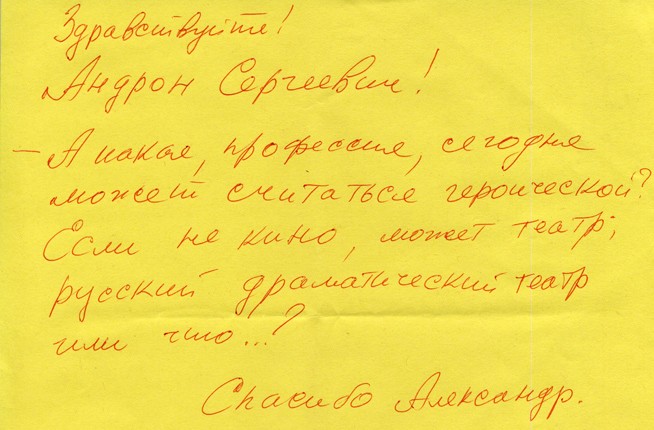 Здравствуйте!
Андрон Сергеевич!
— А какая, профессия, сегодня
может считаться героической?
Если не кино, может театр,
русский драматический театр
или что...?
Спасибо Александр.